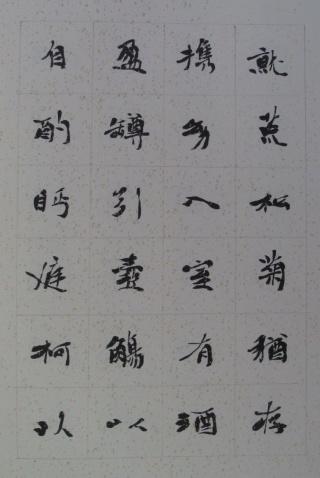 就荒松菊猶存
攜幼入室有酒
盈罇引壺觴以
自酌眄庭柯以